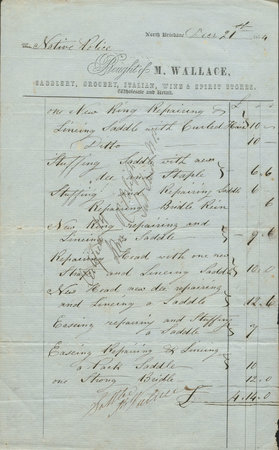 North Brisbane Decr 21st 1864
Native Police
Bought of M. WALLACE,
SADDLERY, GROCERY, ITALIAN, WINE & SPIRIT STORES.
Wholesale and Retail.
one New Ring Repairing &
Linceing Saddle with Curled Hair 10 —
Ditto 10 —
Stuffing Saddle with new
dee and Staple 6.6
Stuffing and Repairing Saddle 6
Repairing Bridle Rein 6
New Ring repairing and
Linceing a Saddle 9.6
Repairing Head with one new
Staple and Linceing Saddle 10.0
New Head new dee repairing
and Linceing a Saddle 12.6
Easeing repairing and Stuffing
a Saddle 7
Easeing Repairing & Linceing
a Pack Saddle 10
one Strong Bridle 12.0
£ 4.14.0